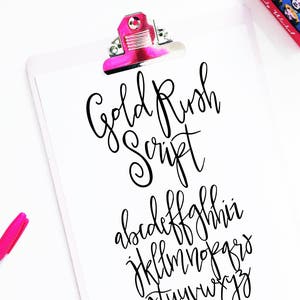 Gold Rush
Script
abcdeffghhiii
jkllmnopqrs
tuvwxyz